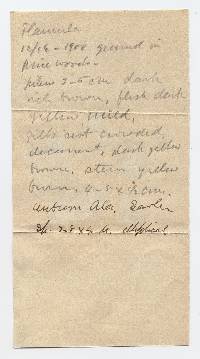 Flammula
12/16-1900 ground in
Pine woods-
Pileus 3-5 cm dark
rich brown, flesh dark
yellow mild,
gills not crowded,
decurrent, dark yellow
brown, stem yellow
brown 4-8 x ½ cm.
Auburn Ala. Earle
Sp. 7-8 x 4 µ, elliptical,